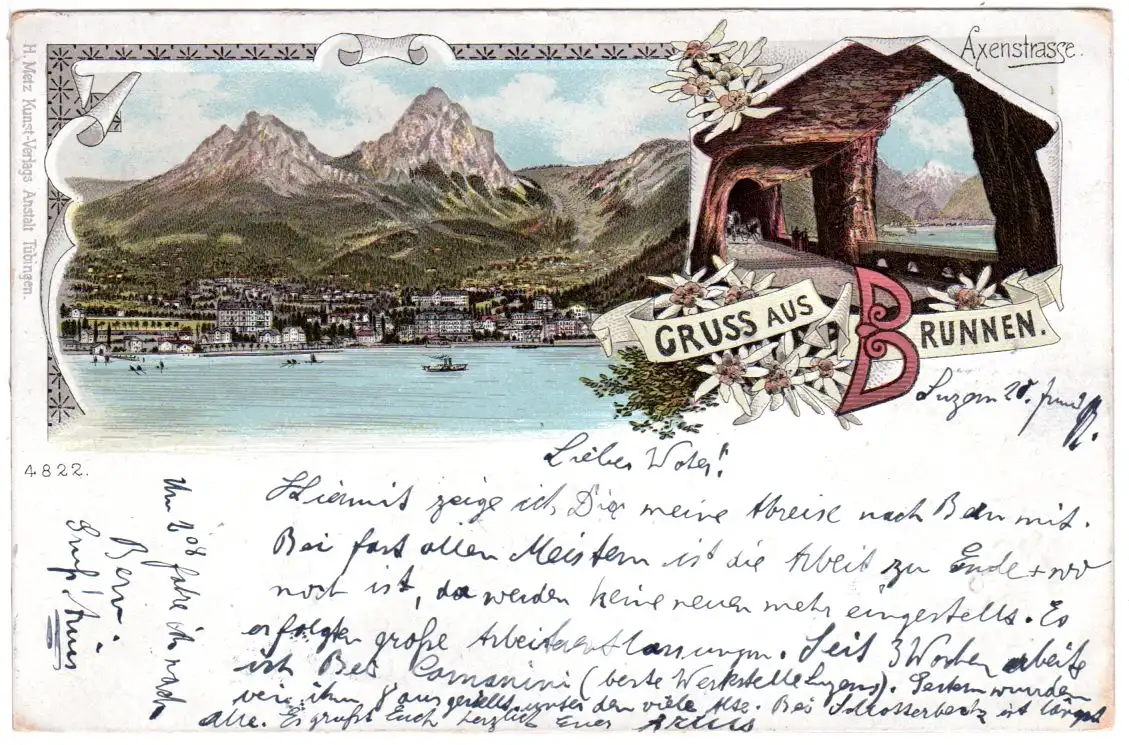 H. Metz Kunst-Verlags Anstalt Tübingen.
Axenstrasse.
GRUSS AUS BRUNNEN.
4822.
Luzern 28. Juni
Lieber Vater!
Hiermit zeige ich Dir meine Abreise nach Bern mit.
Bei fast allen Meistern ist die Arbeit zu Ende + wo
noch ist, da werden keine neuen mehr eingestellt. Es
erfolgten große Arbeiterentlassungen. Seit 3 Wochen arbeite
ich Bei Comanini (beste Werkstelle Luzerns). Gestern wurden
von ihm 8 ausgestellt, unter den viele Alte. Bei Schlosserbeck ist längst
alle. Es grüßt Euch herzlich Euer
Um 208 fahre ich nach
Bern.
Gruß!